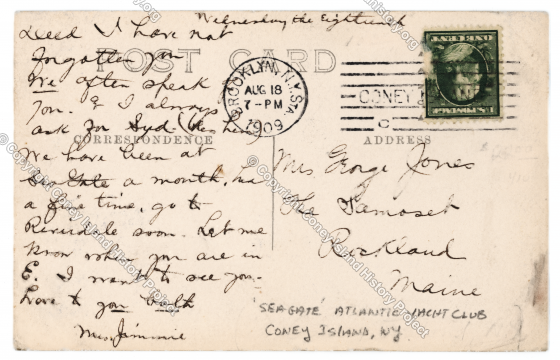 Wednesday the Eighteenth
Deed I have not
forgotten you
We often speak
you. & I always
ask for Syd.
We have been at
Sea Gate a month, had
a fine time, go to
Riverdale soon. Let me
know when you are in
E. I want to see you.
Love to you both
POST CARD
BROOKLYN, N.Y. STA.
AUG 18
7-PM
1909
CONEY
C
CORRESPONDENCE
ADDRESS
Mrs George Jones
The Samoset
Rockland
Maine
'SEAGATE' ATLANTIC YACHT CLUB
CONEY ISLAND, NY
Coney Island History Project